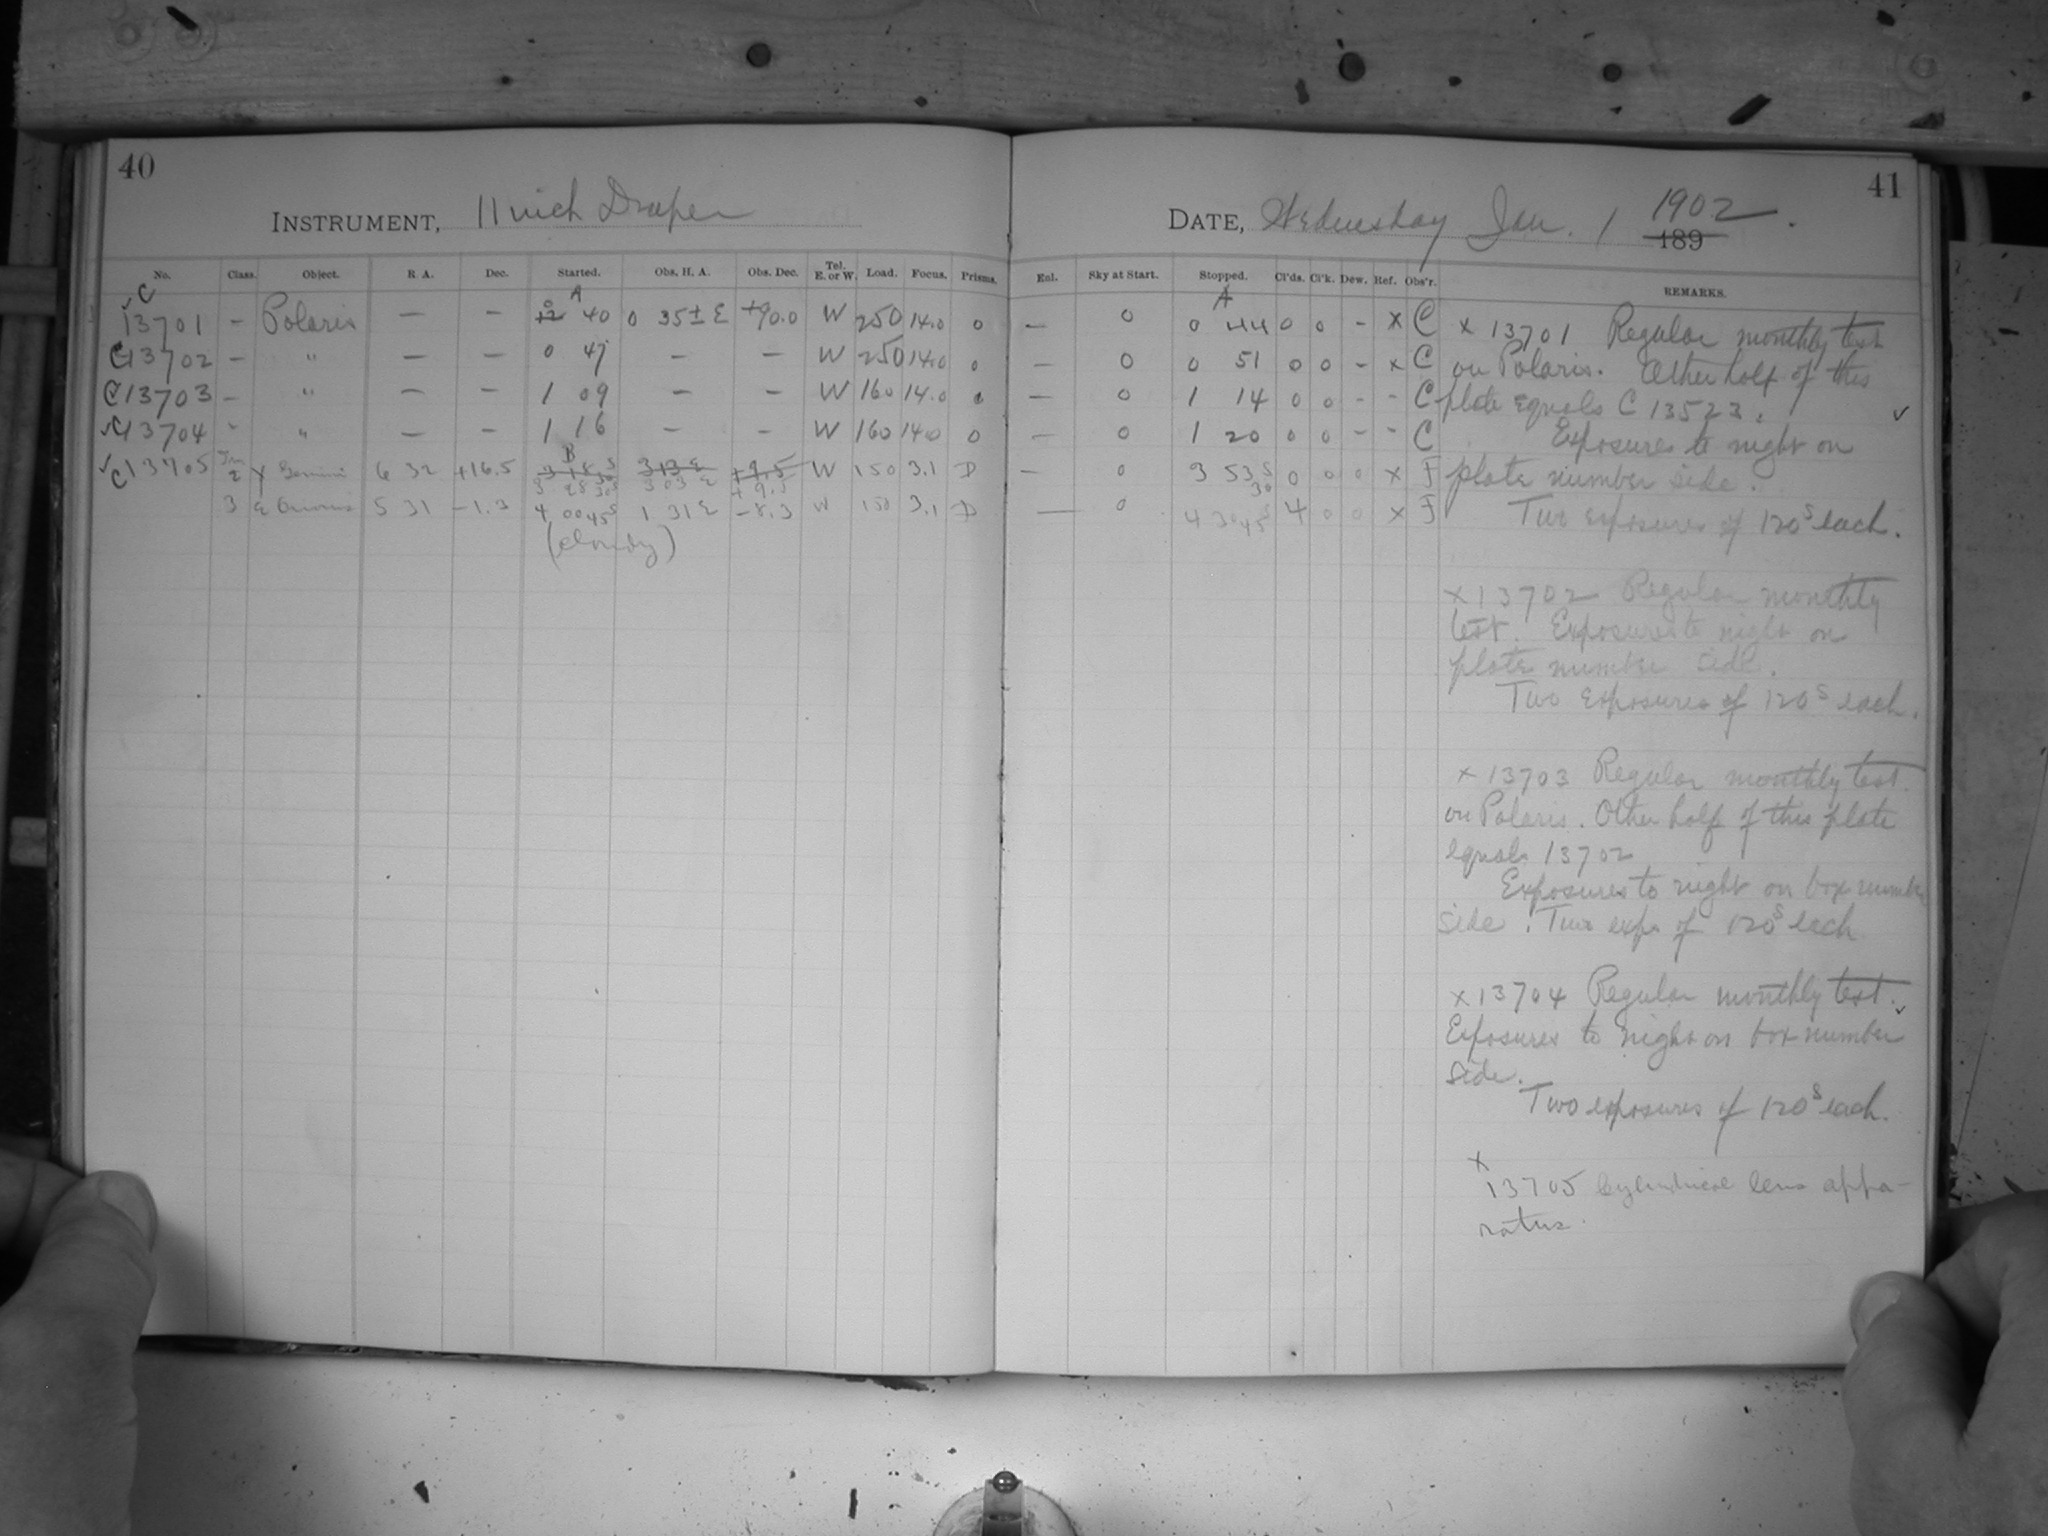 40
INSTRUMENT, 11 inch Draper
No. Class. Object. R. A. Dec. Started. Obs. H. A. Obs. Dec. Tel. E. or W. Load. Focus. Prisms.
A
C 13701 — Polaris — — 0 40 0 35± E +90.0 W 250 14.0 0
C 13702 — " — — 0 47 — — W 250 14.0 0
C 13703 — " — — 1 09 — — W 160 14.0 0
C 13704 - " — — 1 16 — — W 160 14.0 0
B
C 13705 2 γ Gemini 6 32 +16.5 W 150 3.1 D
3 28 30s 3 03 E + 9.5
3 ε Orionis 5 31 -1.3 4 00 45s 1 31 E -8.3 W 150 3.1 D
(cloudy)
41
DATE, Wednesday Jan. 1 1902
189
Enl. Sky at Start. Stopped. Cl'ds. Cl'k. Dew. Ref. Obs'r. REMARKS.
A
— 0 0 44 0 0 - x C
— 0 0 51 0 0 - x C
— 0 1 14 0 0 - - C
— 0 1 20 0 0 - - C
— 0 3 53s 30 0 0 0 x F
— 0 4 30 45s 4 0 0 x F
x 13701 Regular monthly test
on Polaris. Other half of this
plate equals C 13523.
Exposures to night on
plate number side.
Two exposures of 120s each.
x 13702 Regular monthly
test. Exposures to night on
plate number side.
Two exposures of 120s each.
x 13703 Regular monthly test.
on Polaris. Other half of this plate
equals 13702
Exposures to night on box number
side. Two exps of 120s each
x 13704 Regular monthly test.
Exposures to night on box number
side.
Two exposures of 120s each.
x
13705 Cylindrical lens appa-
ratus.